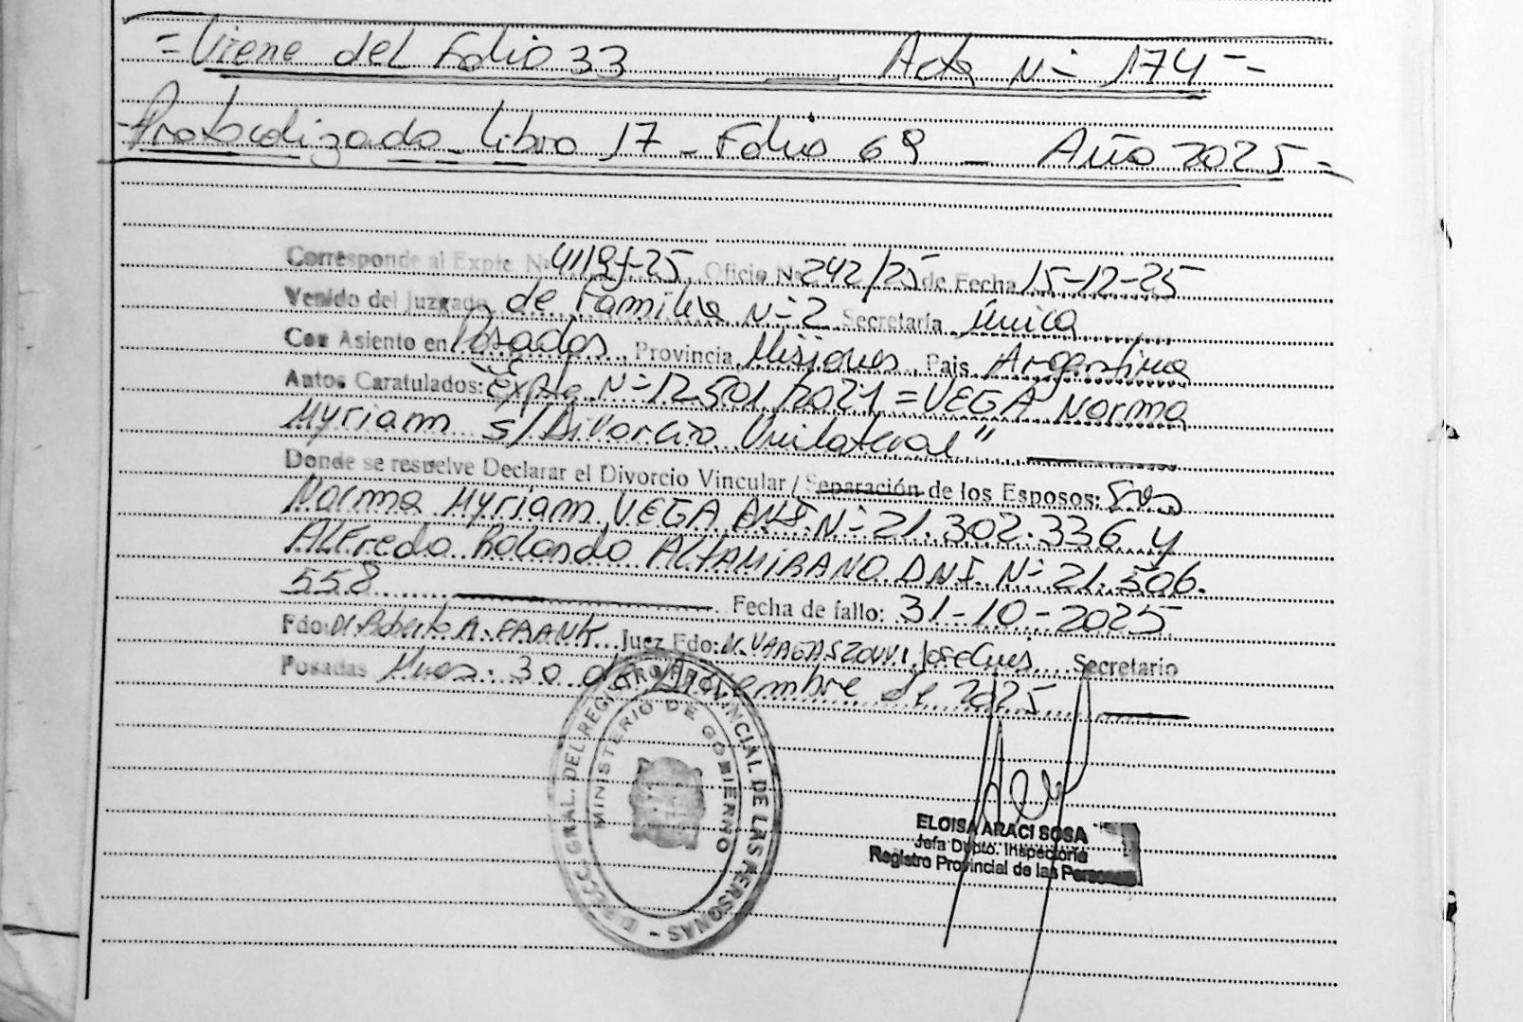 = Viene del Folio 33 ___ Acta N= 174 = -
- Protocolizado - Libro 17 - Folio 69 - Año 2025 =
Corresponde al Expte. Nº Oficio Nº 242/25 de Fecha 15-12-25
Venido del Juzgado de Familia N= 2 Secretaría Única
Con Asiento en Posadas, Provincia Misiones, País Argentina
Autos Caratulados: "Expte N= 12501/2021 = VEGA Norma
Myriam s/Divorcio Unilateral"
Donde se resuelve Declarar el Divorcio Vincular / Separación de los Esposos:
Norma Myriam VEGA DNI. N= 21.302.336 y
Alfredo Rolando ALTAMIRANO DNI. N= 21.506.
558 Fecha de fallo: 31-10-2025
Fdo: Dr Roberto A. FRANK Juez Fdo: José Luis Secretario
Posadas Mnes. 30 de Noviembre de 2025
DIRECC. GRAL. DEL REGISTRO PROVINCIAL DE LAS PERSONAS -
MINISTERIO DE GOBIERNO
ELOISA ARACI SOSA
Jefa Dpto. Inspectoria
Registro Provincial de las Personas